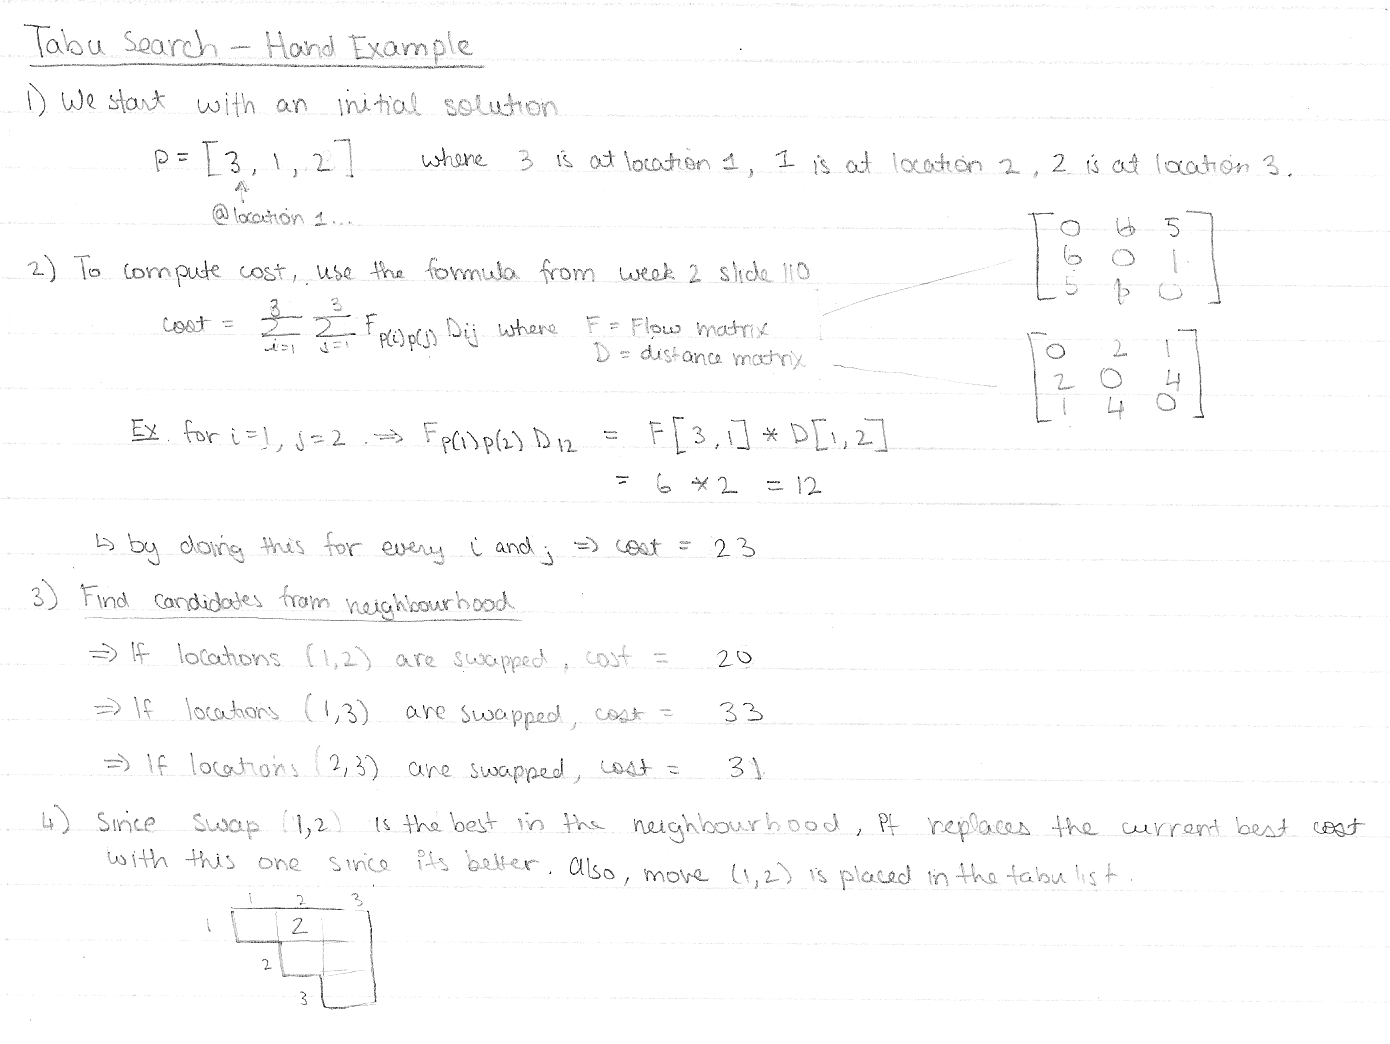 Tabu Search – Hand Example
1) We start with an initial solution
p = [3, 1, 2] where 3 is at location 1, 1 is at location 2, 2 is at location 3.
@location 1...
2) To compute cost, use the formula from week 2 slide 110
cost = 3 Σ i=1 3 Σ j=1 F p(i)p(j) Dij where F = Flow matrix
D = distance matrix
0 6 5
6 0 1
5 1 0
0 2 1
2 0 4
1 4 0
Ex. for i=1, j=2 ⇒ F p(1)p(2) D12 = F[3,1] * D[1,2]
= 6 * 2 = 12
↳ by doing this for every i and j ⇒ cost = 23
3) Find candidates from neighbourhood
⇒ If locations (1,2) are swapped, cost = 20
⇒ If locations (1,3) are swapped, cost = 33
⇒ If locations (2,3) are swapped, cost = 31
4) Since swap (1,2) is the best in the neighbourhood, it replaces the current best cost
with this one since its better. Also, move (1,2) is placed in the tabu list.
1 2 3
1 2
2
3